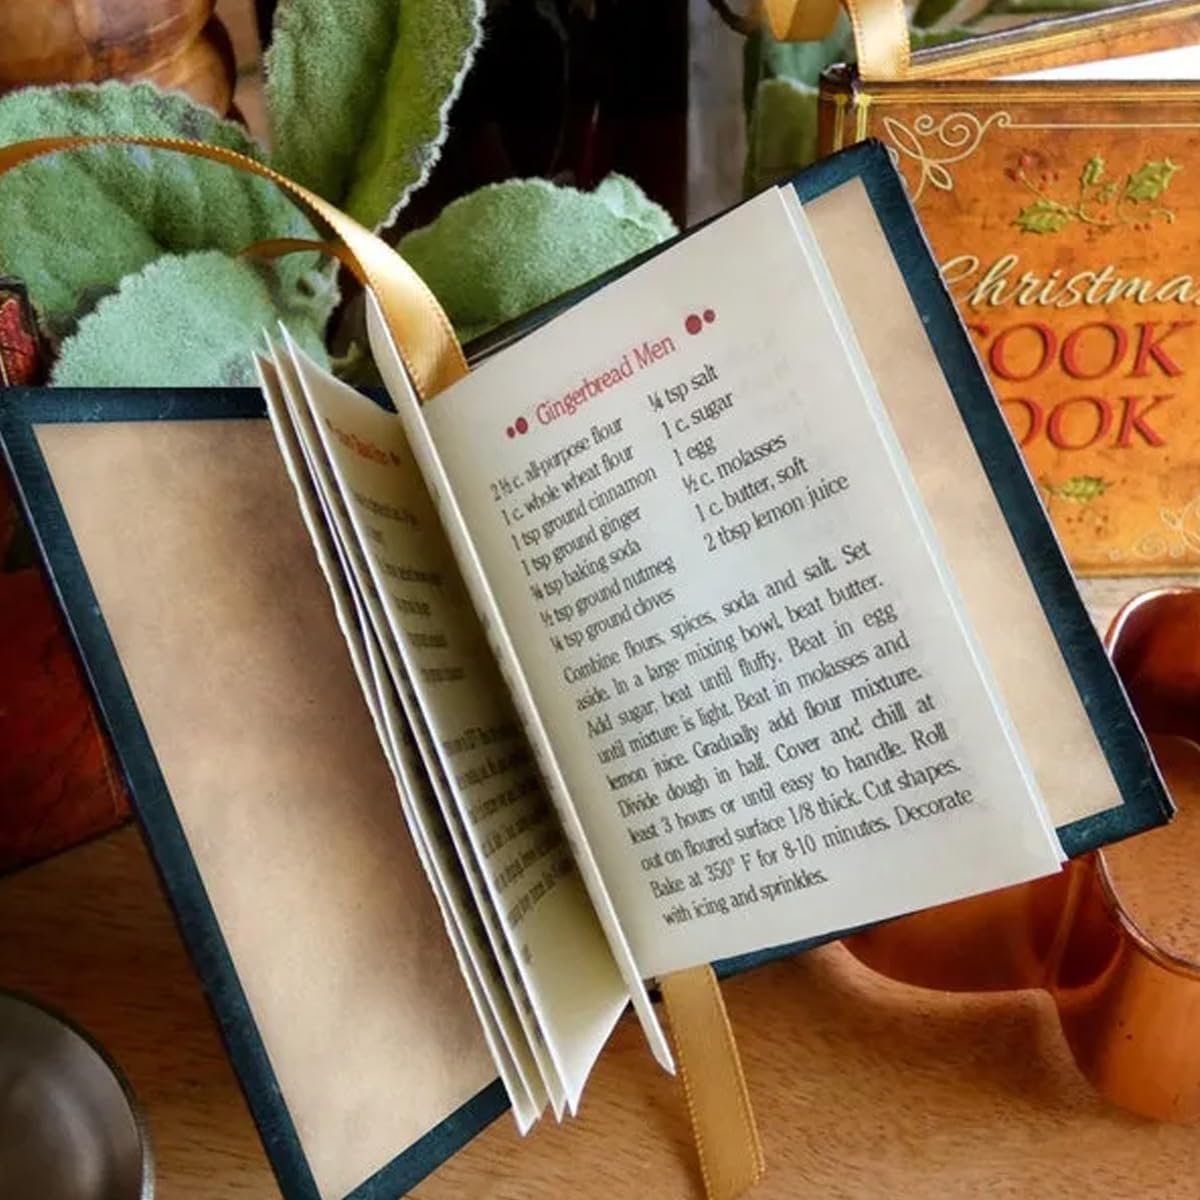 Gingerbread Men
2 ½ c. all-purpose flour
1 c. whole wheat flour
1 tsp ground cinnamon
1 tsp ground ginger
¾ tsp baking soda
½ tsp ground nutmeg
¼ tsp ground cloves
¼ tsp salt
1 c. sugar
1 egg
½ c. molasses
1 c. butter, soft
2 tbsp lemon juice
Combine flours, spices, soda and salt. Set
aside. In a large mixing bowl, beat butter.
Add sugar, beat until fluffy. Beat in egg
until mixture is light. Beat in molasses and
lemon juice. Gradually add flour mixture.
Divide dough in half. Cover and chill at
least 3 hours or until easy to handle. Roll
out on floured surface 1/8 thick. Cut shapes.
Bake at 350° F for 8-10 minutes. Decorate
with icing and sprinkles.
Christma
COOK
OOK